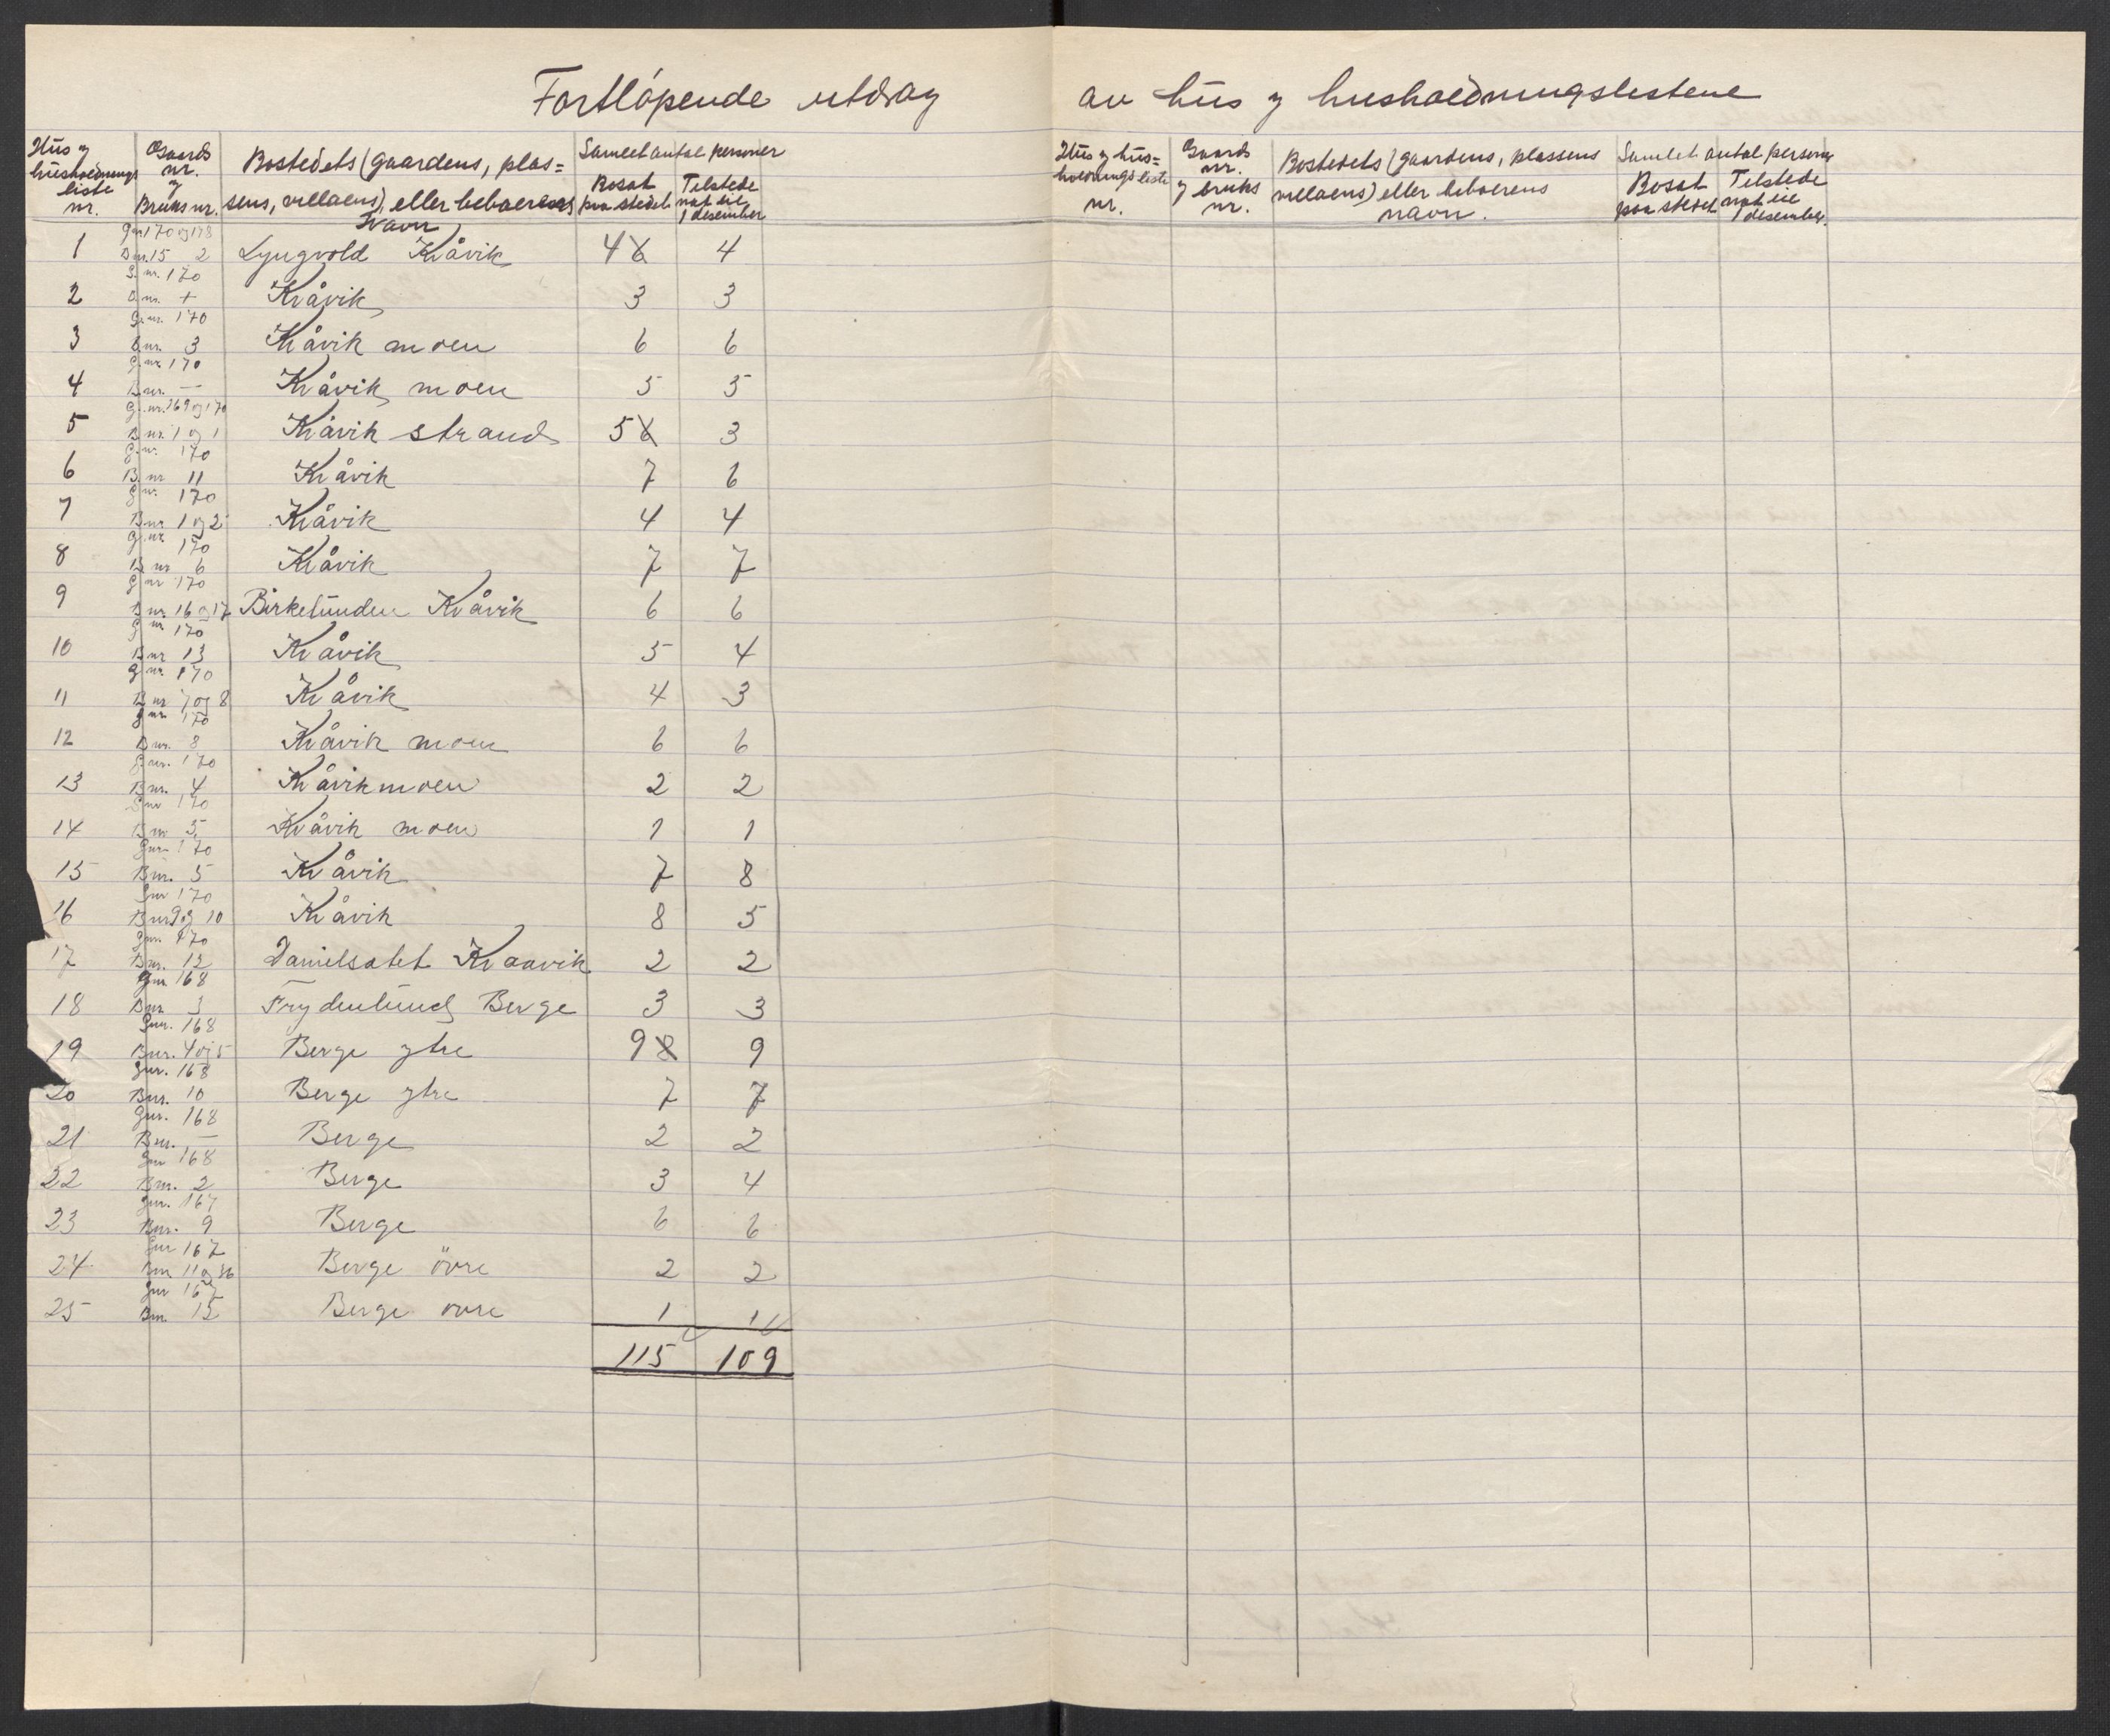 Fortløpende utdrag av hus og husholdningslistene
Hus og husholdnings liste nr. | Gaards nr. og Bruks nr. | Bostedets (gaardens, plassens, villaens), eller beboerens Navn | Samlet antal personer | Bosat paa stedet | Tilstede nat til 1 desember
Gnr 170 og 178
1 Bnr. 15 2 Lyngvold Kvåvik 4 6 4
G. nr. 170
2 B nr. + Kvåvik 3 3
G. nr. 170
3 B nr. 3 Kvåvik moen 6 6
G nr. 170
4 B nr. — Kvåvik moen 5 5
G. nr. 169 og 170
5 B nr. 1 og 1 Kvåvik strand 5 6 3
G. nr. 170
6 B. nr 11 Kvåvik 7 6
G nr. 170
7 B nr 1 og 2 Kvåvik 4 4
G. nr 170
8 B nr 6 Kvåvik 7 7
G nr 170
9 B nr. 16 og 17 Birkelunden Kvåvik 6 6
G nr 170
10 B nr 13 Kvåvik 5 4
G nr. 170
11 B nr 7 og 8 Kvåvik 4 3
G nr. 170
12 B nr. 8 Kvåvik moen 6 6
G nr. 170
13 B nr. 4 Kvåvikmoen 2 2
Gnr 170
14 B nr 5 Kvåvik moen 1 1
Gnr 170
15 Bnr. 5 Kvåvik 7 8
Gnr 170
16 Bnr 9 og 10 Kvåvik 8 5
Gnr. 170
17 Bnr. 12 Danielsatet Kvaavik 2 2
Gnr 168
18 Bnr 3 Frydenlund Berge 3 3
Gnr. 168
19 Bnr. 4 og 5 Berge ytre 9 8 9
Gnr. 168
20 Bnr. 10 Berge ytre 7 7
Gnr. 168
21 Bnr. — Berge 2 2
Gnr 168
22 Bnr. 2 Berge 3 4
Gnr. 167
23 Bnr. 9 Berge 6 6
Gnr 167
24 Bnr 11 og 36 Berge övre 2 2
Gnr 167
25 Bnr. 15 Berge övre 1 1
115 109
Hus og husholdnings liste nr. | Gaards nr. og bruks nr. | Bostedets (gaardens, plassens villaens) eller beboerens navn. | Samlet antal personer | Bosat paa stedet | Tilstede nat til 1 desember.